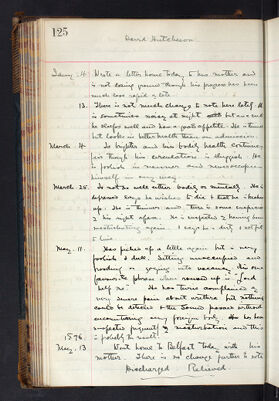 125
David Hutcheson
Jany. 4. Wrote a letter home today to his mother and
is not losing ground though his progress has been
much less rapid of late.
13. There is not much change to note here lately. He
is sometimes noisy at night but as a rule
he sleeps well and has a good appetite. He is thin
but looks in better health than on admission.
March. 4. Is brighter and his bodily health continues
though his circulation is sluggish. He
is foolish in manner and
himself in any way.
March 25. Is not so well either bodily or mentally. He is
depressed says he wishes to die & that he is broken
up. He is thinner and there is some
& his right apex. He is suspected of having been
masturbating again. I says he is dirty & not fit
to live.
May. 11. Has picked up a little again but is very
foolish & dull. Sitting unoccupied and
brooding or gazing into vacancy. His one
favourite phrase when roused up is "God
help me". He has twice complained of
very severe pain about urethra but nothing
could be detected & the sound passed without
encountering any foreign body. He has been
suspected of masturbation and this
is probably the result.
1876.
May. 13 Went home to Belfast today with his
mother. There is no change further to note
Discharged Relieved